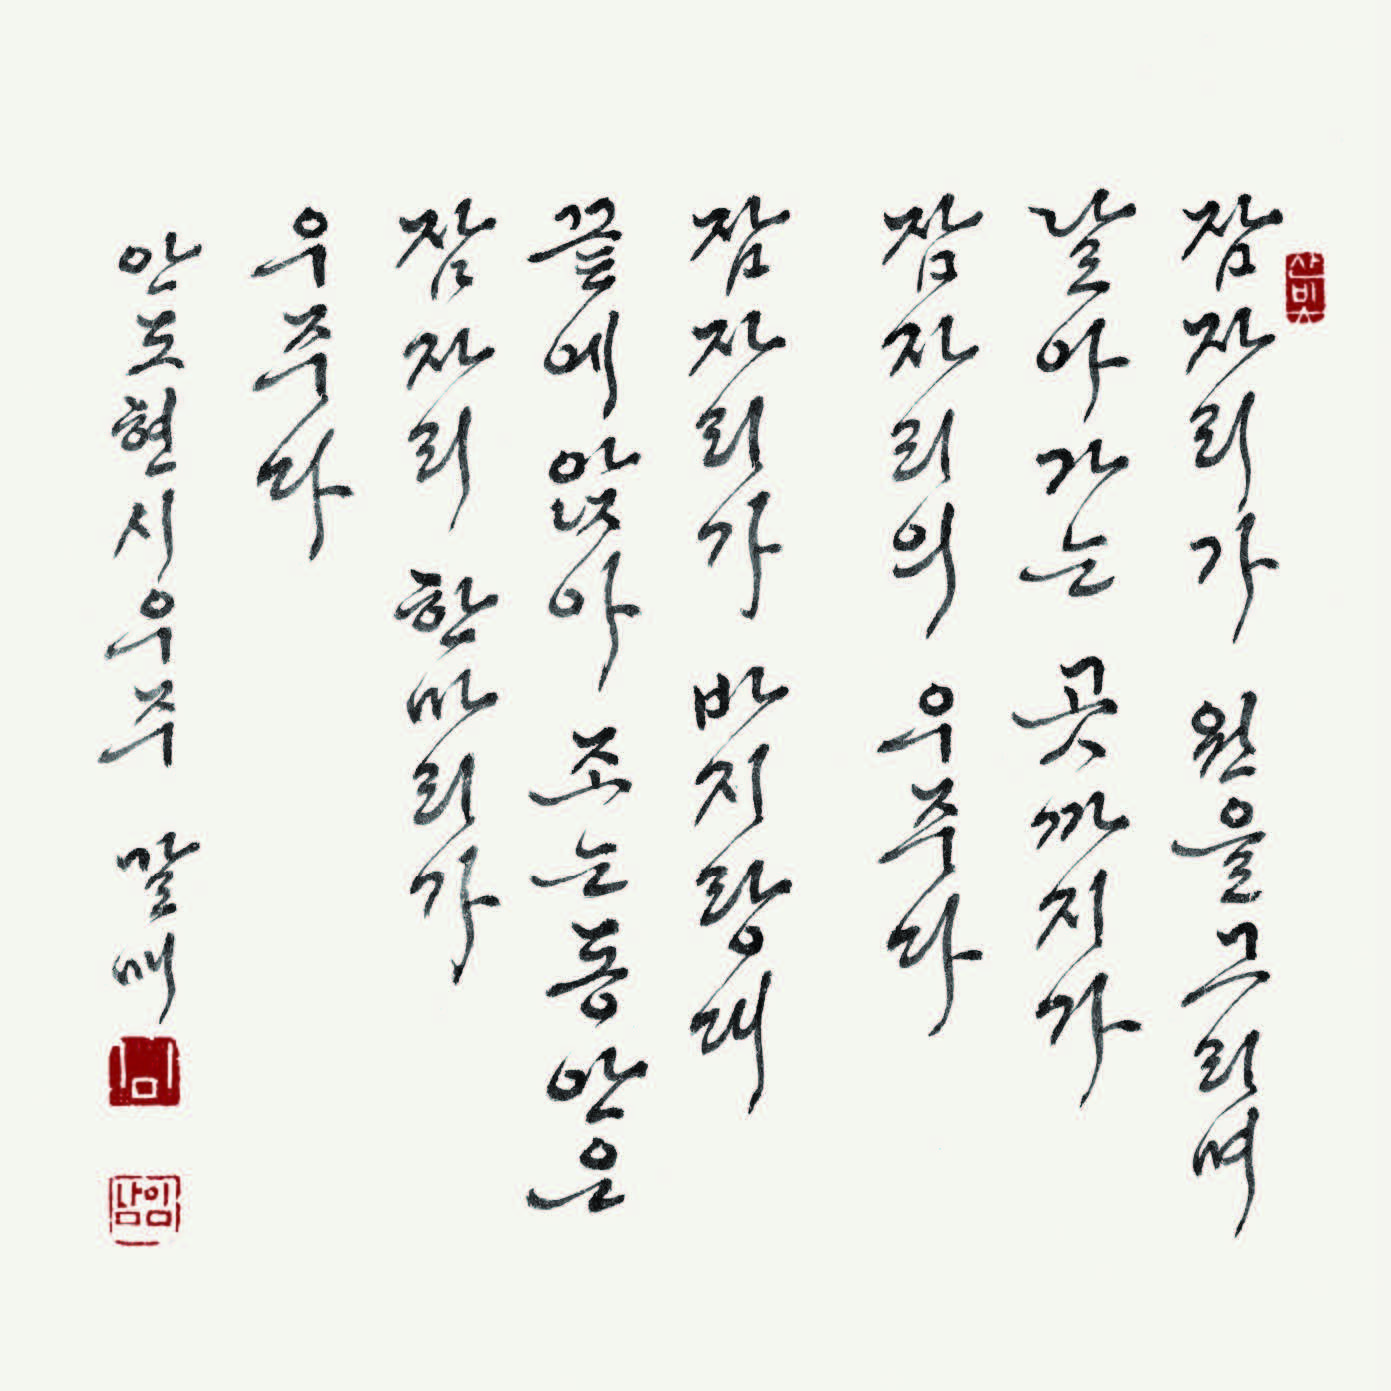 잠자리가 원을 그리며
날아가는 곳까지가
잠자리의 우주다
잠자리가 바지랑대
끝에 앉아 조는 동안은
잠자리 한 마리가
우주다
안도현 시 우주 말매